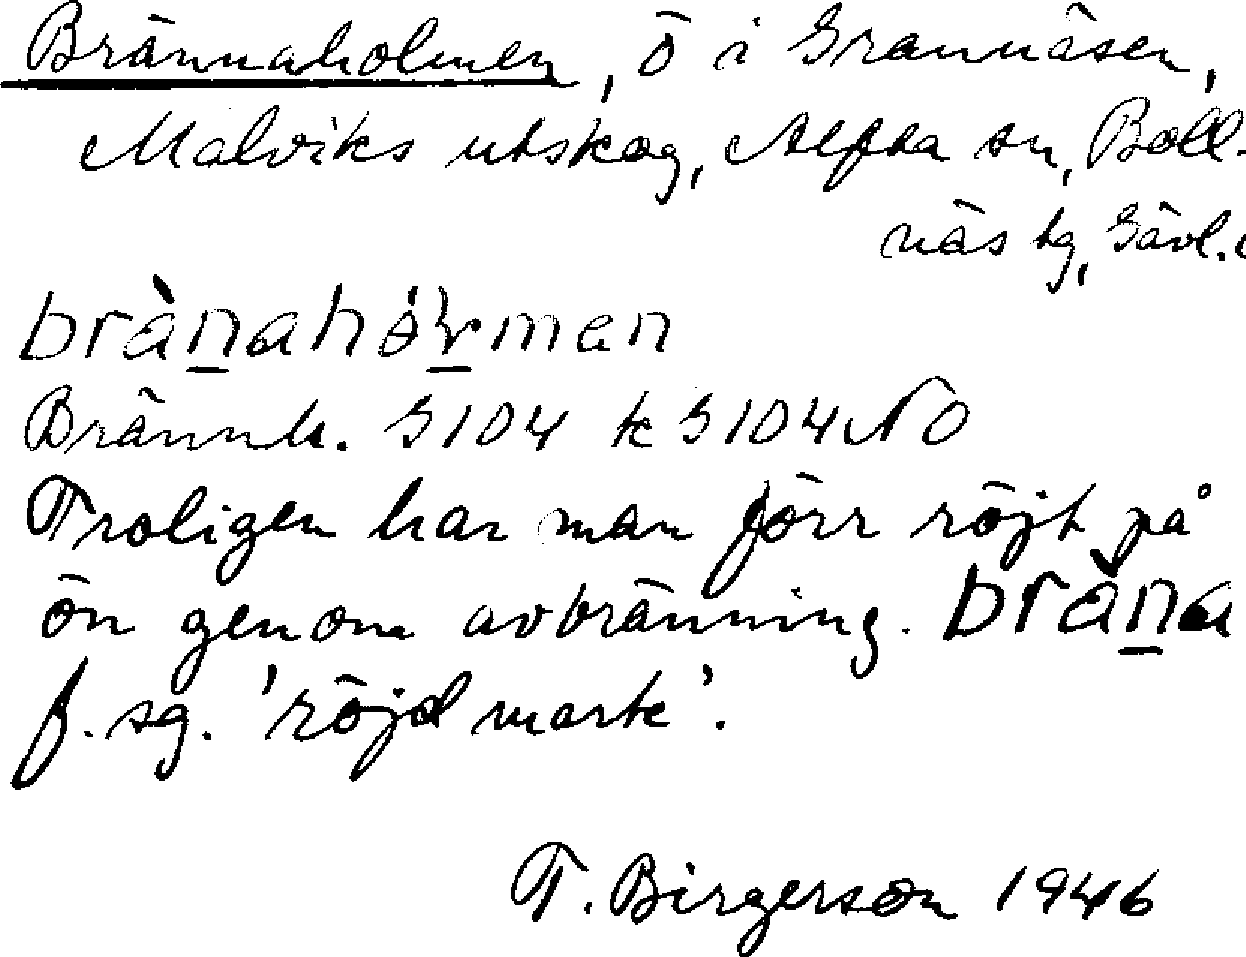 Brännaholmen, ö i Grannäsen,
Malviks utskog, Alfta sn, Boll-
näs tg, Gävl.
brànahólmen
Brännh. G104 k G104NO
Troligen har man förr röjt på
ön genom avbränning. bràna
f. sg. 'röjd mark'.
T. Birgerson 1946